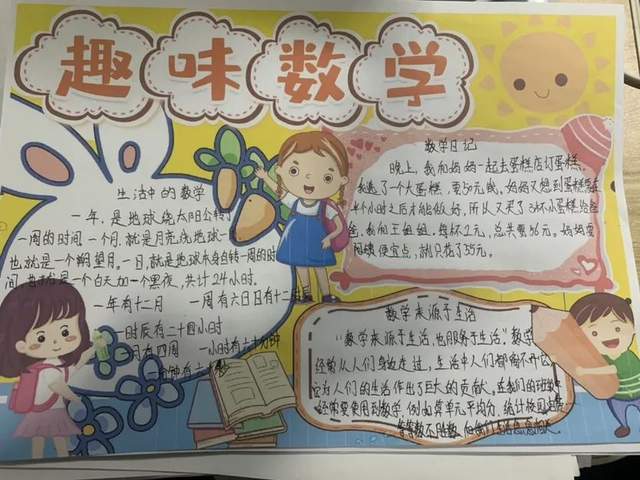 趣味数学
生活中的数学
一年，是地球绕太阳公转
一周的时间一个月，就是月亮绕地球一
也就是一个朔望月。一日，就是地球本身自转一周的时
间 是一个白天加一个黑夜，共计24小时。
一年有十二月 一周有六日日有十二
一时辰有二十四小时
月有四周 一小时有六十分钟
数学日记
晚上，我和妈妈一起去蛋糕店订蛋糕。
我选了一个大蛋糕，要30元钱，妈妈又想到蛋糕
个小时之后才能做好，所以又买了3杯小蛋糕给爸
爸，我和王姐姐，每杯2元，总共要36元。妈妈
阿姨便宜点，就只花了35元。
数学来源于生活
“数学来源于生活，也服务于生活。”数学
经常从人们身边走过，生活中人们都离不开它
它为人们的生活作出了巨大的贡献。在我们的班
经常要使用到数学，例如算单元平均分，统计
等等数不胜数